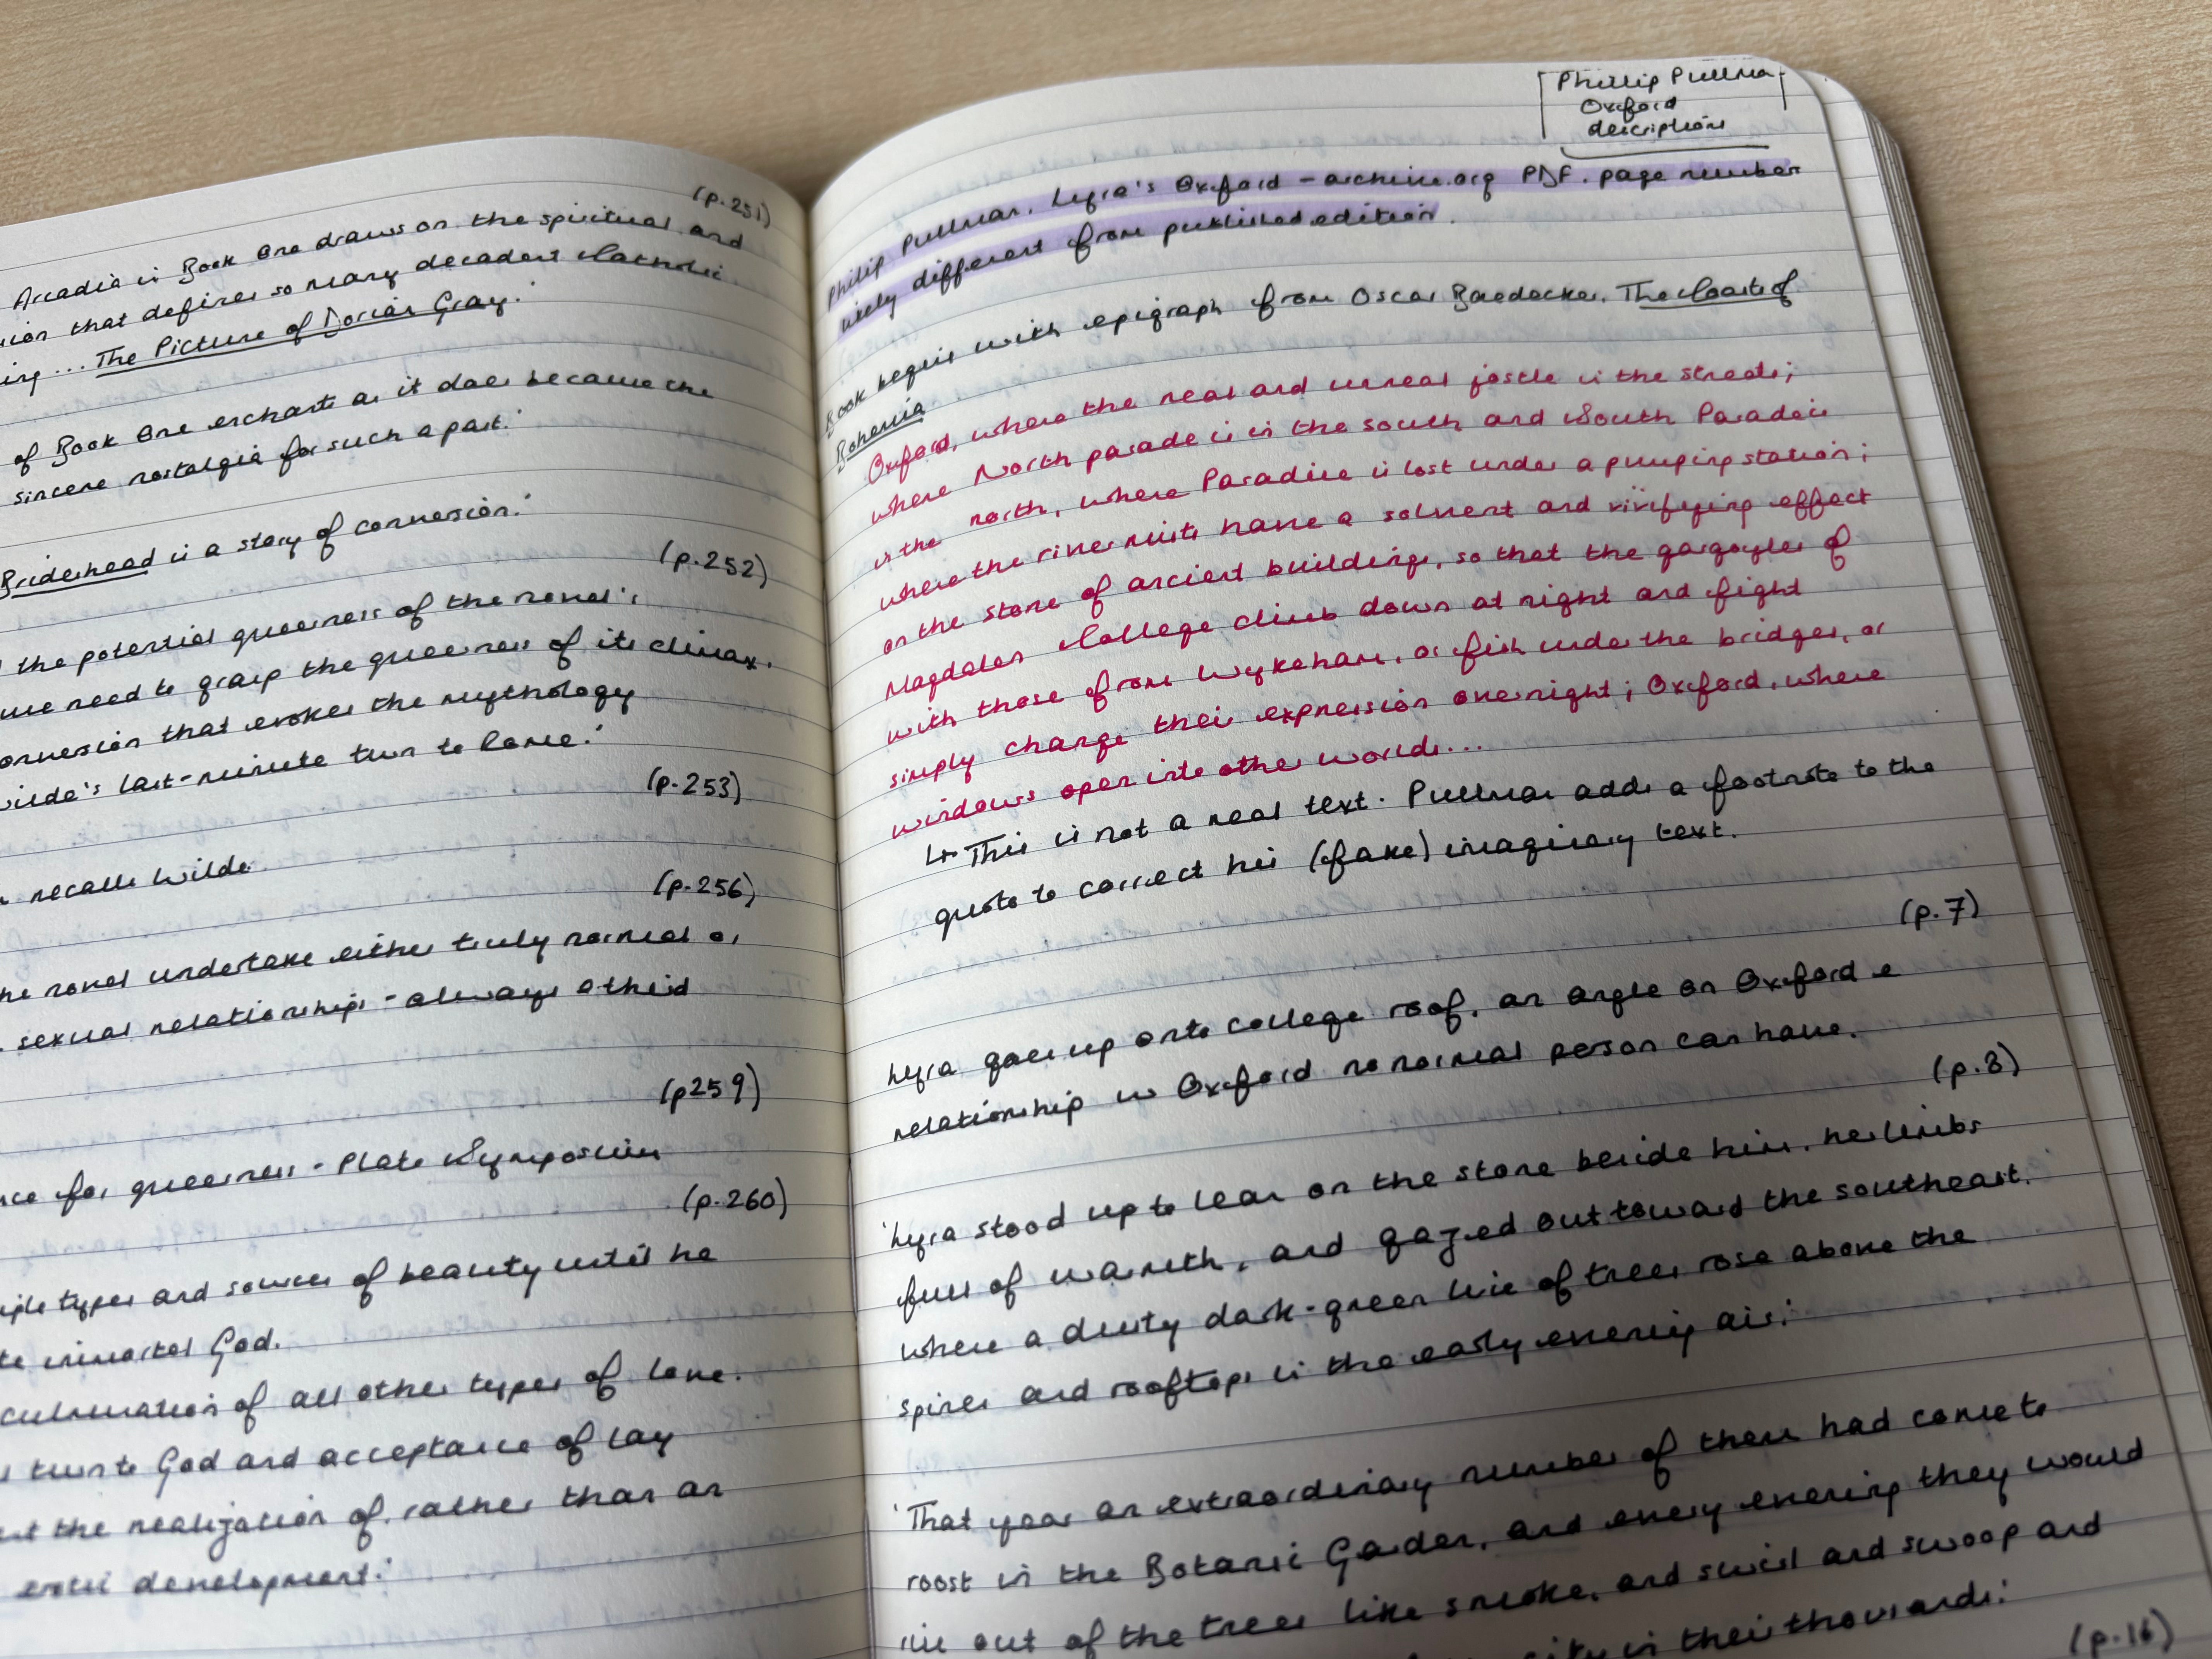 (p.251)
Arcadia in Book One draws on the spiritual and
that defines so many decadent Catholic
... The Picture of Dorian Gray.'
of Book One enchants as it does because the
sincere nostalgia for such a past.'
Brideshead is a story of conversion.'
(p.252)
the potential queerness of the novel's
we need to grasp the queerness of its climax.
that evokes the mythology
last-minute turn to Rome.'
(p.253)
recalls Wilde
(p.256)
novel undertake either truly normal or
sexual relationships - always othered
(p259)
for queerness - Plato Symposium
(p.260)
types and sources of beauty until he
immortal God.
culmination of all other types of love.
turn to God and acceptance of Lay
the realization of, rather than an
erotic development.'
Phillip Pullman
Oxford
descriptions
Philip Pullman. Lyra's Oxford - archive.org PDF. page number
likely different from published edition.
Book begins with epigraph from Oscar Baedecker, The Coasts of
Bohemia
Oxford, where the real and unreal jostle in the streets;
where North parade is in the south and South Parade is
in the north, where Paradise is lost under a pumping station;
where the river mists have a solvent and vivifying effect
on the stone of ancient buildings, so that the gargoyles of
Magdalen College climb down at night and fight
with those from Wykeham, or fish under the bridges, or
simply change their expression overnight; Oxford, where
windows open into other worlds...
↳ This is not a real text. Pullman adds a footnote to the
quote to correct his (fake) imaginary text.
(p.7)
Lyra goes up onto college roof, an angle on Oxford e
relationship w Oxford no normal person can have.
(p.8)
'Lyra stood up to lean on the stone beside him, her limbs
full of warmth, and gazed out toward the southeast.
where a dusty dark-green line of trees rose above the
spires and rooftops in the early evening air.'
'That year an extraordinary number of them had come to
roost in the Botanic Garden, and every evening they would
rise out of the trees like smoke, and swirl and swoop and
city in their thousands.'
(p.16)